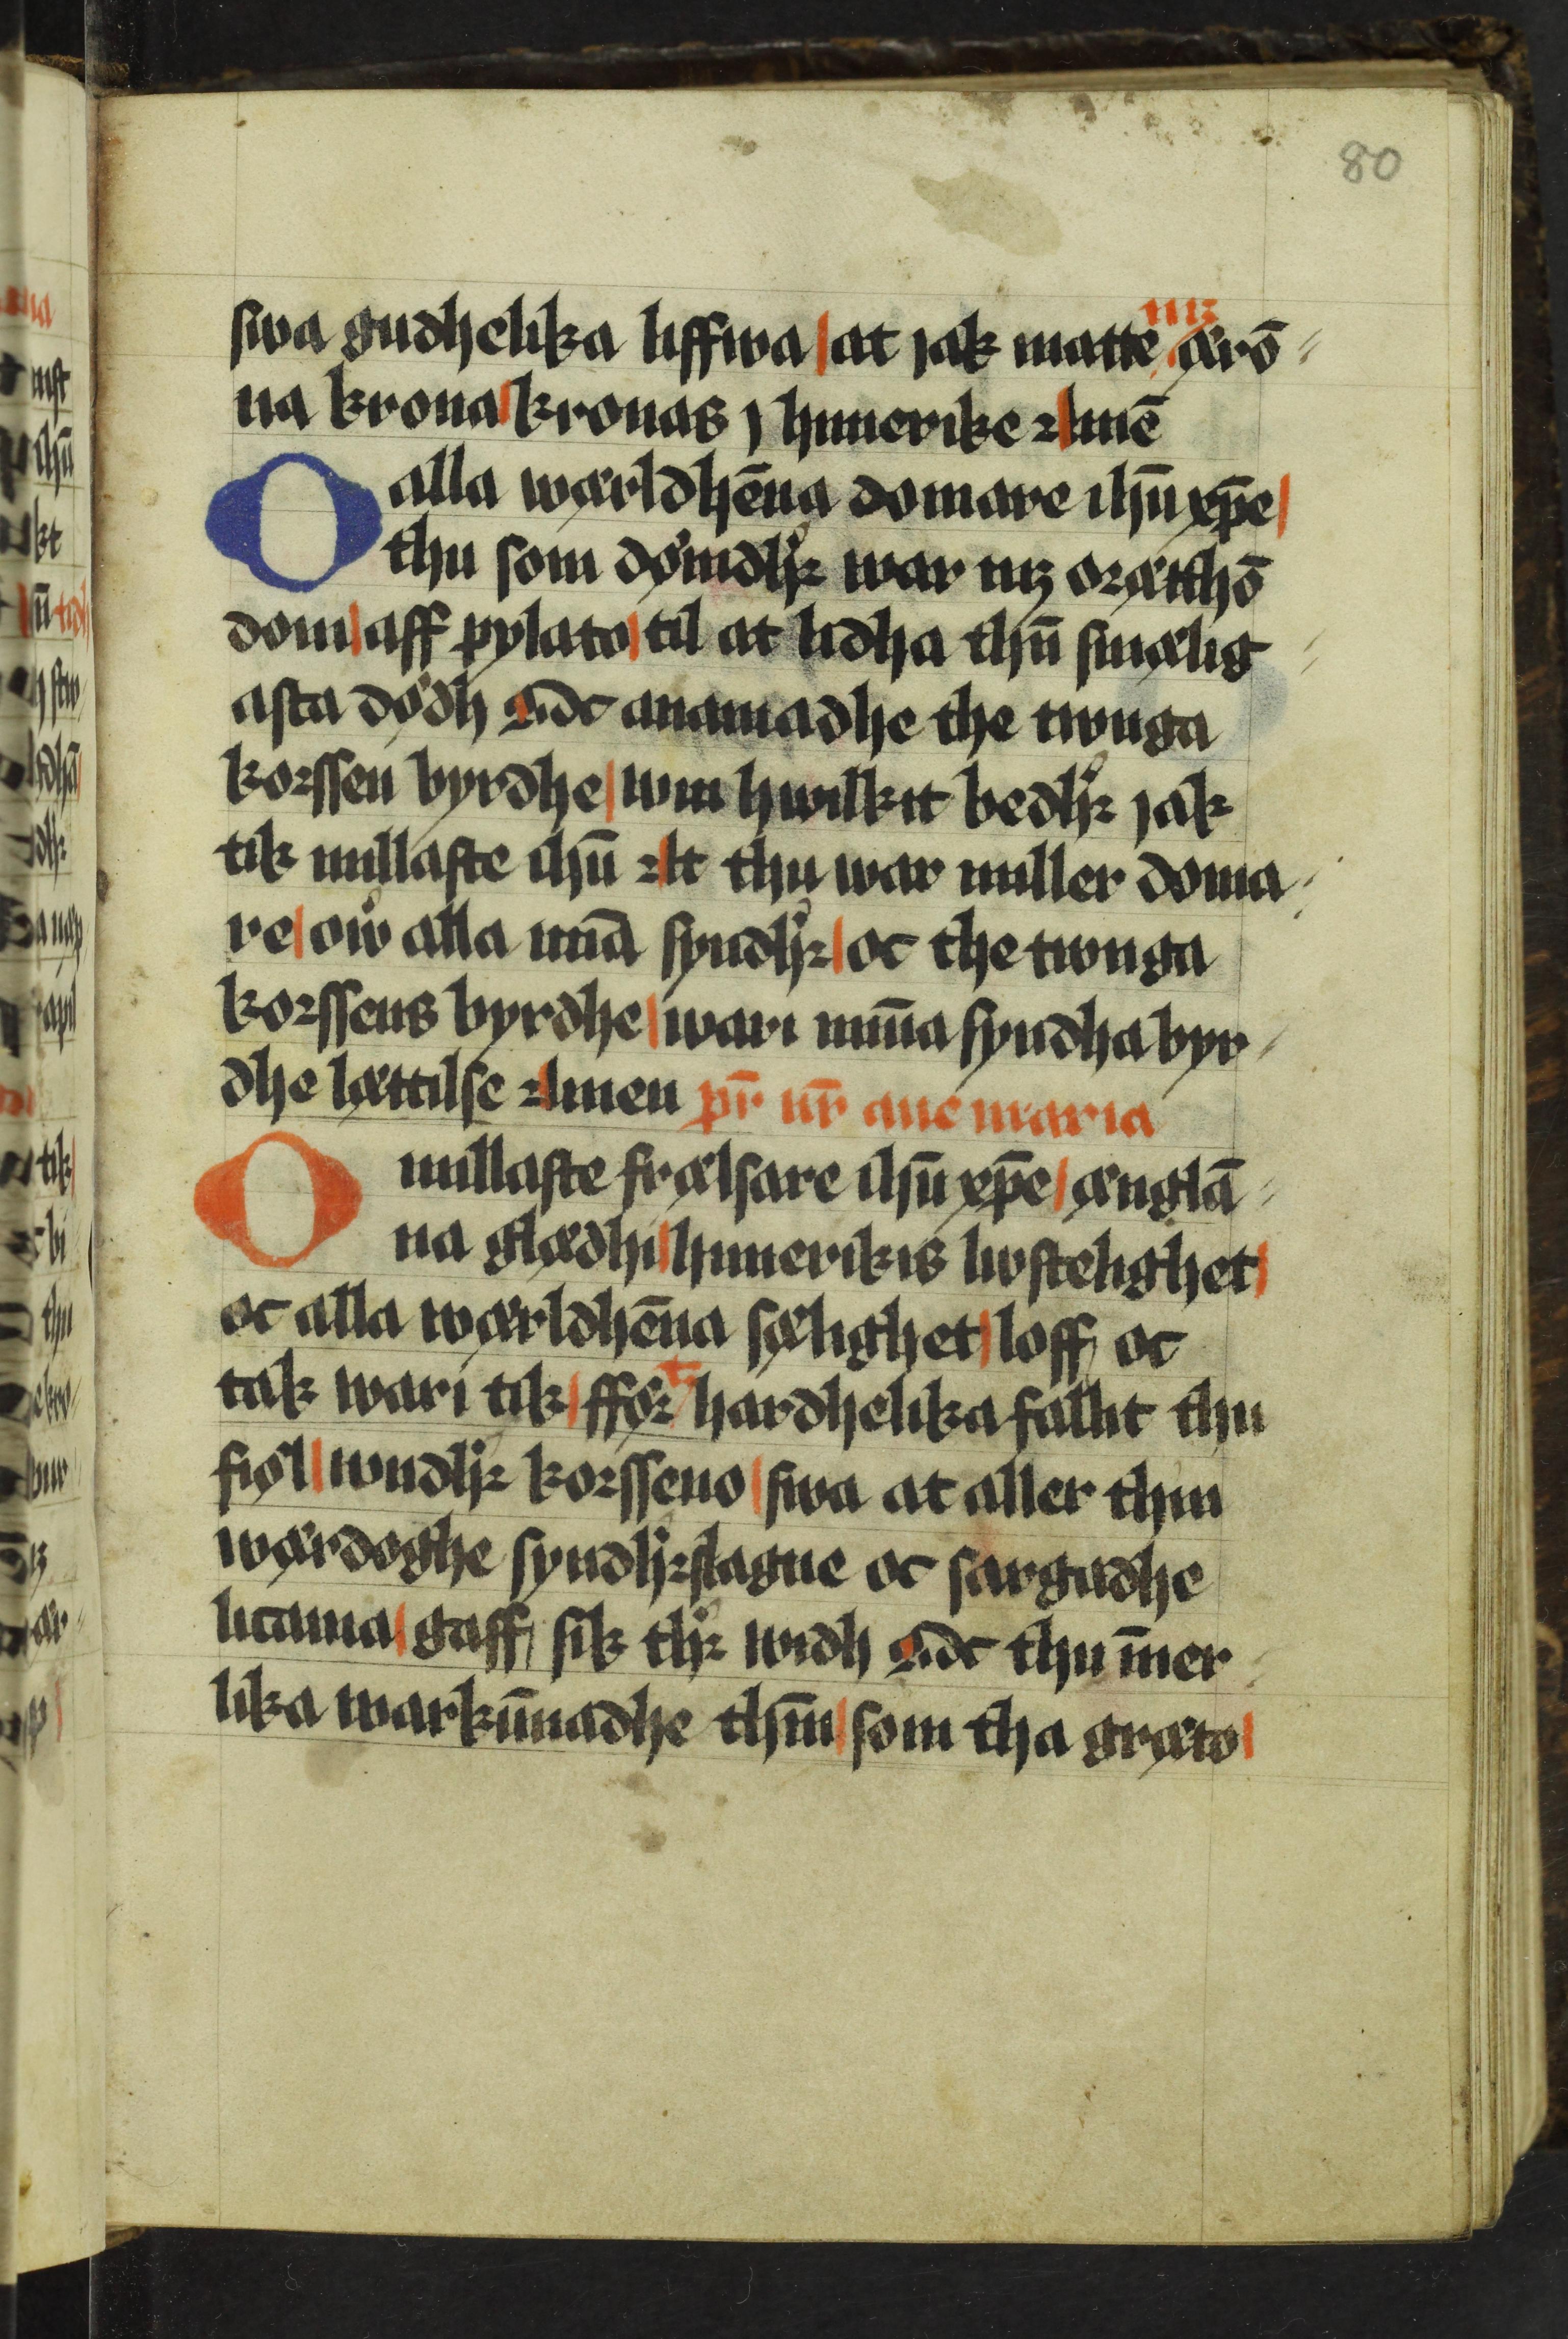 80
swa gudhelika liffwa | at jak matte mz ærō
na krona | kronas j himerike Amē
O alla wærldhēna domare ihū xpē |
thu som dømdh᷎r war mz orætthō
dom | aff pylato | til at lidha thn̄ smælig
asta dødh Oc anamadhe the twnga
korssen byrdhe | wm hwilkit bedh᷎r jak
tik millaste ihū At thu war miller doma
re | ow᷎ alla mīā syndh᷎r | oc the twnga
korssens byrdhe | wari mīna syndha byr
dhe lættilse Amen pr̄ nr̄ aue maria
O millaste frælsare ihū xpē | ænglā
na glædhi | himerikis lwstelighet |
oc alla wærldhēna sælighet | loff oc
tak wari tik | ffør t hardhelika fallit thu
fiøl | wndh᷎r korsseno | swa at aller thin
wærdoghe syndh᷎rslagne oc sargadhe
licama | gaff sik th᷎r widh Oc thu īmer
lika warkūnadhe thīm | som tha græto |